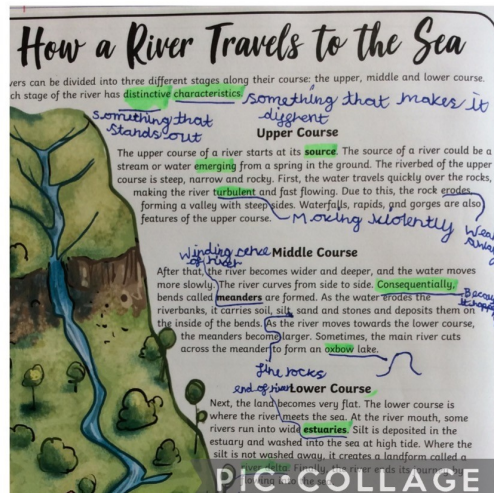 How a River Travels to the Sea
vers can be divided into three different stages along their course: the upper, middle and lower course.
ch stage of the river has distinctive characteristics. something that makes it
different
something that
stands out
Upper Course
The upper course of a river starts at its source. The source of a river could be a
stream or water emerging from a spring in the ground. The riverbed of the upper
course is steep, narrow and rocky. First, the water travels quickly over the rocks,
making the river turbulent and fast flowing. Due to this, the rock erodes,
forming a valley with steep sides. Waterfalls, rapids, and gorges are also
features of the upper course. Moving violently
Middle Course
of river
After that, the river becomes wider and deeper, and the water moves
more slowly. The river curves from side to side. Consequently,
bends called meanders are formed. As the water erodes the
riverbanks, it carries soil, silt, sand and stones and deposits them on
the inside of the bends. As the river moves towards the lower course,
the meanders become larger. Sometimes, the main river cuts
across the meander to form an oxbow lake.
rocks
end of river Lower Course
Next, the land becomes very flat. The lower course is
where the river meets the sea. At the river mouth, some
rivers run into wide estuaries. Silt is deposited in the
estuary and washed into the sea at high tide. Where the
silt is not washed away, it creates a landform called a
river delta. Finally, the river ends its journey by
flowing into the sea.
PIC COLLAGE